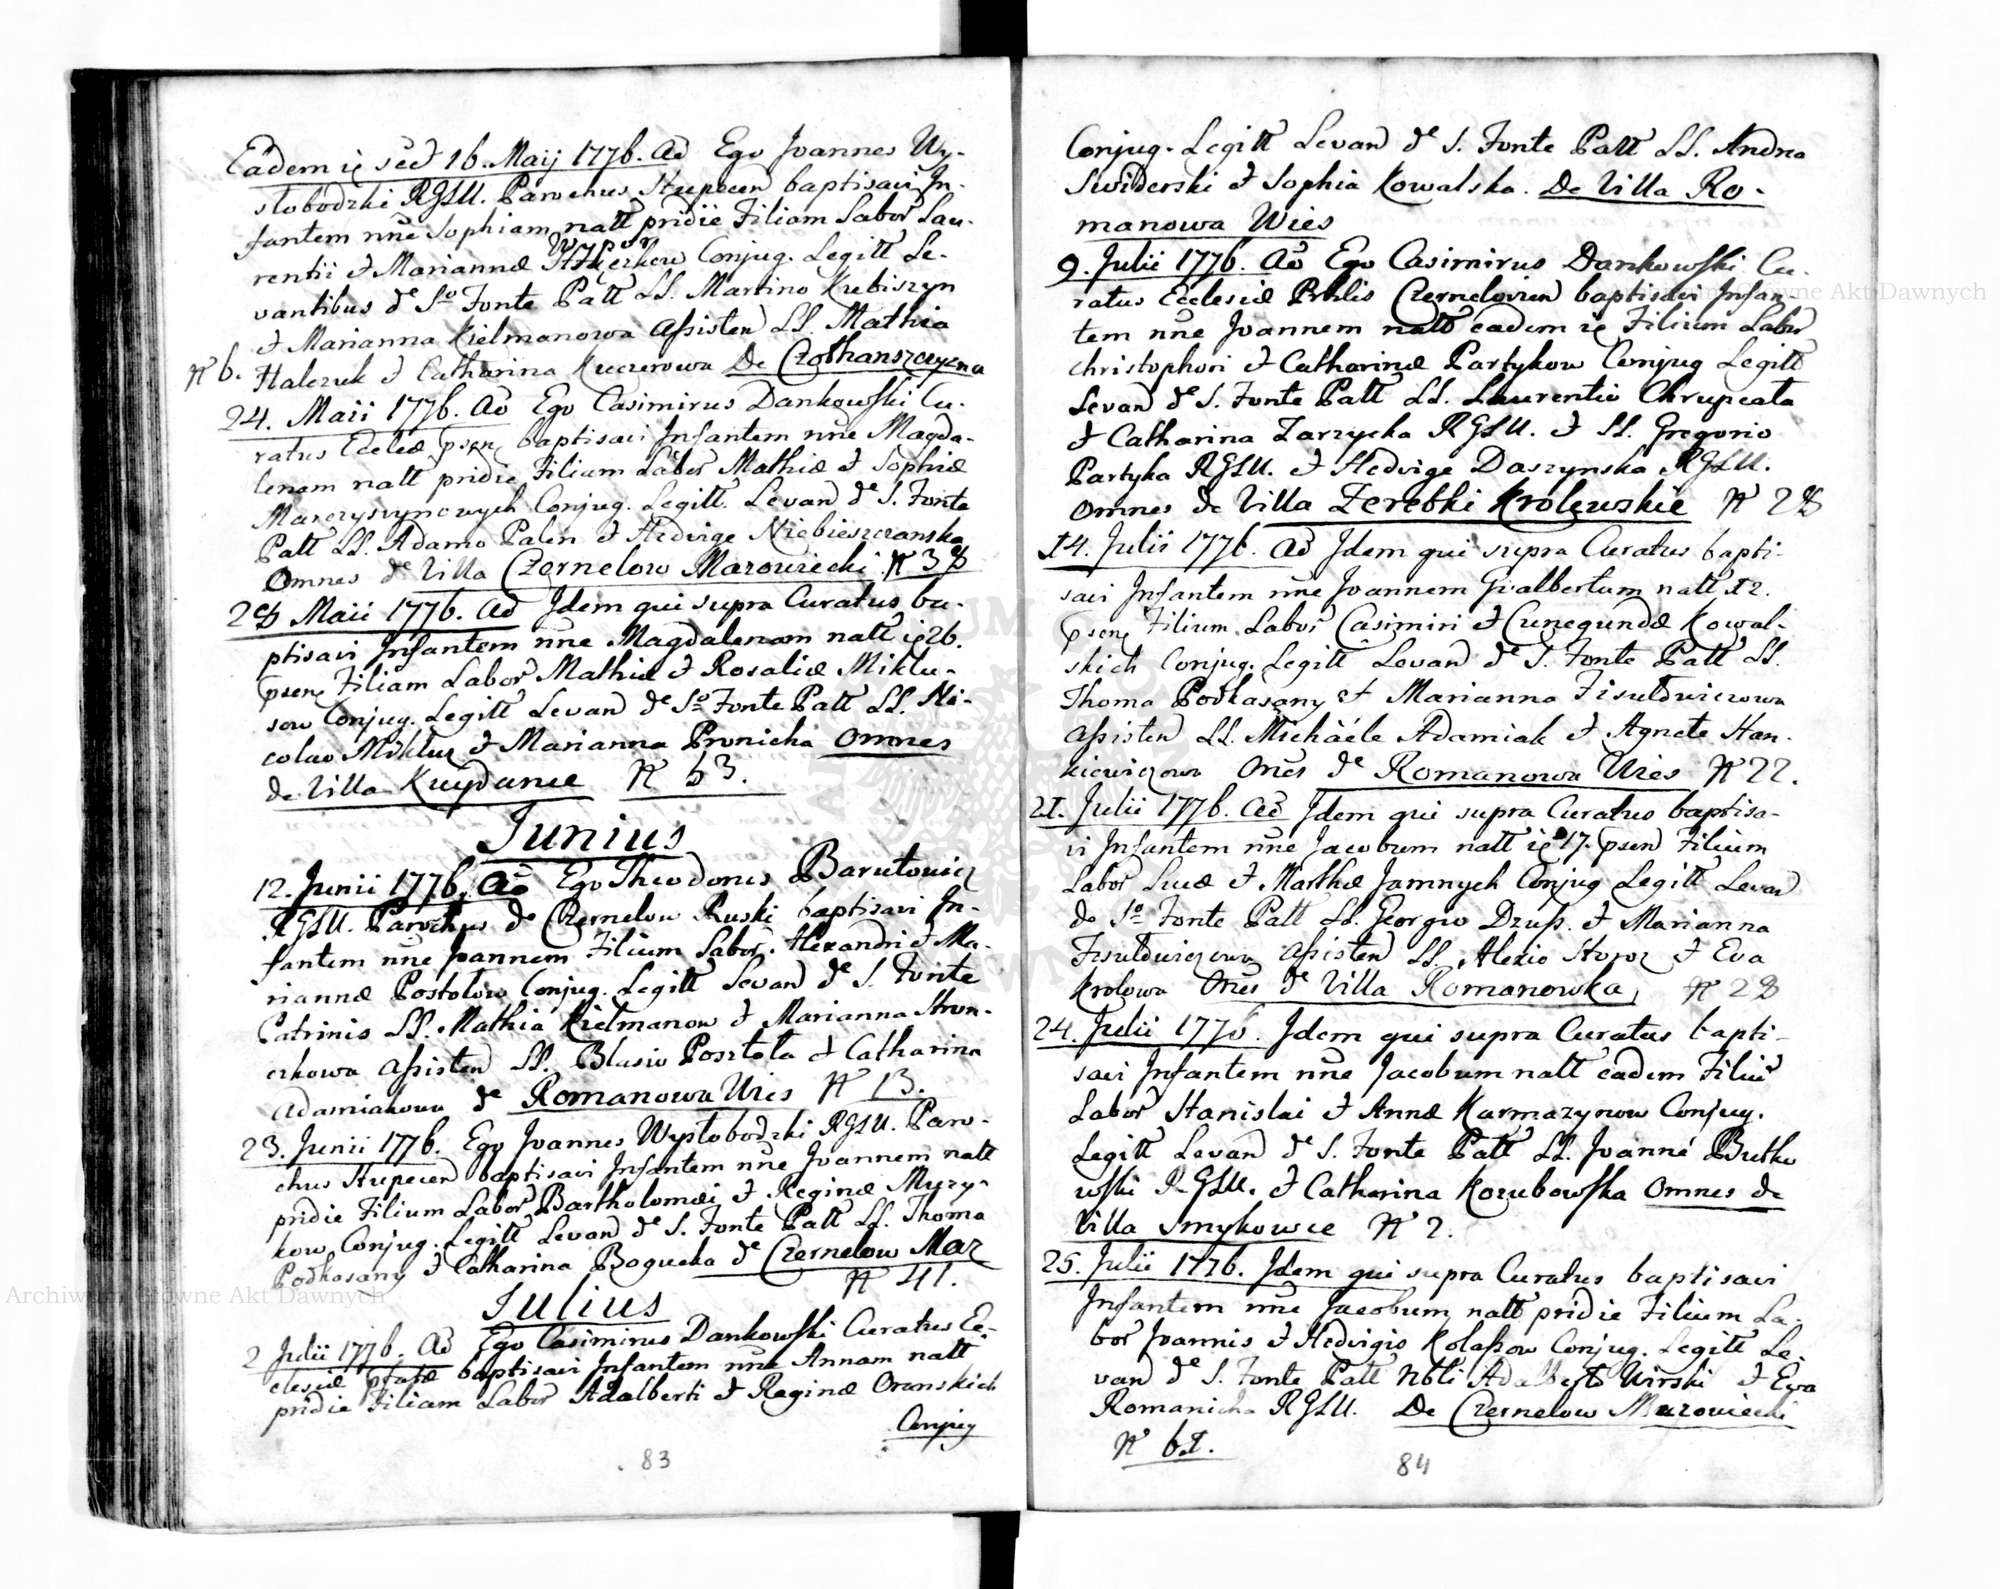 Eadem ie sed 16. Maij 1776. Ao Ego Joannes Wy-
słobodzki RGLU. Parochus Stupecen baptisavi In-
fantem nne Sophiam natt pridie Filiam Labor Lau-
rentii et Mariannæ Conjug. Legitt Le-
vantibus de So Fonte Patt LL. Martino Krebiszyn
et Marianna Kielmanowa Assisten LL. Mathia
N 6. Halczuk et Catharina Kuczerowa De Czołhanszczyzna
24. Maii 1776. Ao Ego Casimirus Dankowski Cu-
ratus Eccleæ psen baptisavi Infantem nne Magda-
lenam natt pridie Filiam Labor Mathiæ et Sophiæ
Marczyszynowych Conjug. Legitt. Levan de S. Fonte
Patt LL. Adamo Palen et Hedvige Niebieszczanska
Omnes de Villa Czernelow Mazowiecki N 38
28 Maii 1776. Ao Idem qui supra Curatus ba-
ptisavi Infantem nne Magdalenam natt ie 26.
psen Filiam Labor Mathiæ et Rosaliæ Miklu-
sow Conjug. Legitt Levan de So Fonte Patt LL. Ni-
colao Miklus et Marianna Pronicha Omnes
de Villa Kuydance N 53.
Junius
12. Junii 1776. Ao Ego Theodorus Barutowicz
RGLU. Parochus de Czernelow Ruski baptisavi In-
fantem nne Joannem Filium Labor. Alexandri et Ma-
riannæ Postołow Conjug. Legitt Levan de S. Fonte
Patrinis LL. Mathia Kielmanow et Marianna Hron-
czkowa Assisten LL. Blasio Posztoła et Catharina
Adamiakowa de Romanowa Wies N 13.
23. Junii 1776. Ego Joannes Wysłobodzki RGLU. Paro-
chus Stupecen baptisavi Infantem nne Joannem natt
pridie Filium Labor Bartholomæi et Reginæ Muzy-
kow Conjug. Legitt Levan de S. Fonte Patt LL. Thoma
Podkasany et Catharina Bogucka de Czernelow Maz
N 41.
Julius
2 Julii 1776. Ao Ego Casimirus Dankowski Curatus Ec-
clesiæ pfatæ baptisavi Infantem nne Annam natt
pridie Filiam Labor Adalberti et Reginæ Oranskich
Conjug
83
Conjug. Legitt Levan de S. Fonte Patt LL. Andrea
Swiderski et Sophia Kowalska. De Villa Ro-
manowa Wies
9. Julii 1776. Ao Ego Casimirus Dankowski Cu-
ratus Ecclesiæ Prhlis Czernelovien baptisavi Infan-
tem nne Joannem natt eadem ie Filium Labor
Christophori et Catharinæ Partykow Conjug Legitt
Levan de S. Fonte Patt LL. Laurentio Chrupcata
et Catharina Zarzycka RGLU. et LL. Gregorio
Partyka RGLU. et Hedvige Daszynska RGLU.
Omnes de Villa Zerebki Krolewskie N 28
14. Julii 1776. Ao Idem qui supra Curatus bapti-
savi Infantem nne Joannem Gualbertum natt 12.
psen Filium Labor Casimiri et Cunegundæ Kowal-
skich Conjug. Legitt Levan de S. Fonte Patt LL.
Thoma Podkasany et Marianna Fisułdwiczowa
Assisten LL. Michaele Adamiak et Agnete Han-
kiewiczowa Ones de Romanowa Wies N 22.
21. Julii 1776. Ao Idem qui supra Curatus baptisa-
vi Infantem nne Jacobum natt ie 17. psen Filium
Labor Lucæ et Marthæ Jamnych Conjug Legitt Levan
de So Fonte Patt LL. Georgio Druss. et Marianna
Fisuldwiczowa Assisten LL. Alexio et Eva
Krolowa Ones de Villa Romanowka, N 28
24. Julii 1776. Idem qui supra Curatus bapti-
savi Infantem nne Jacobum natt eadem Filiu
Labor Stanislai et Annæ Karmazynow Conjug.
Legitt Levan de S. Fonte Patt LL. Joanne Butko
wski RGLU. et Catharina Kozubowska Omnes de
Villa Smykowce N 2.
25. Julii 1776. Idem qui supra Curatus baptisavi
Infantem nne Jacobum natt pridie Filium La-
bor Joannis et Hedvigis Kolassow Conjug. Legitt Le-
van de S. Fonte Patt Nbli Adalberto Wirski et Eva
Romanicha RGLU. De Czernelow Mazowiecki
N 61.
84
Archiwum Główne Akt Dawnych
Archiwum Główne Akt Dawnych